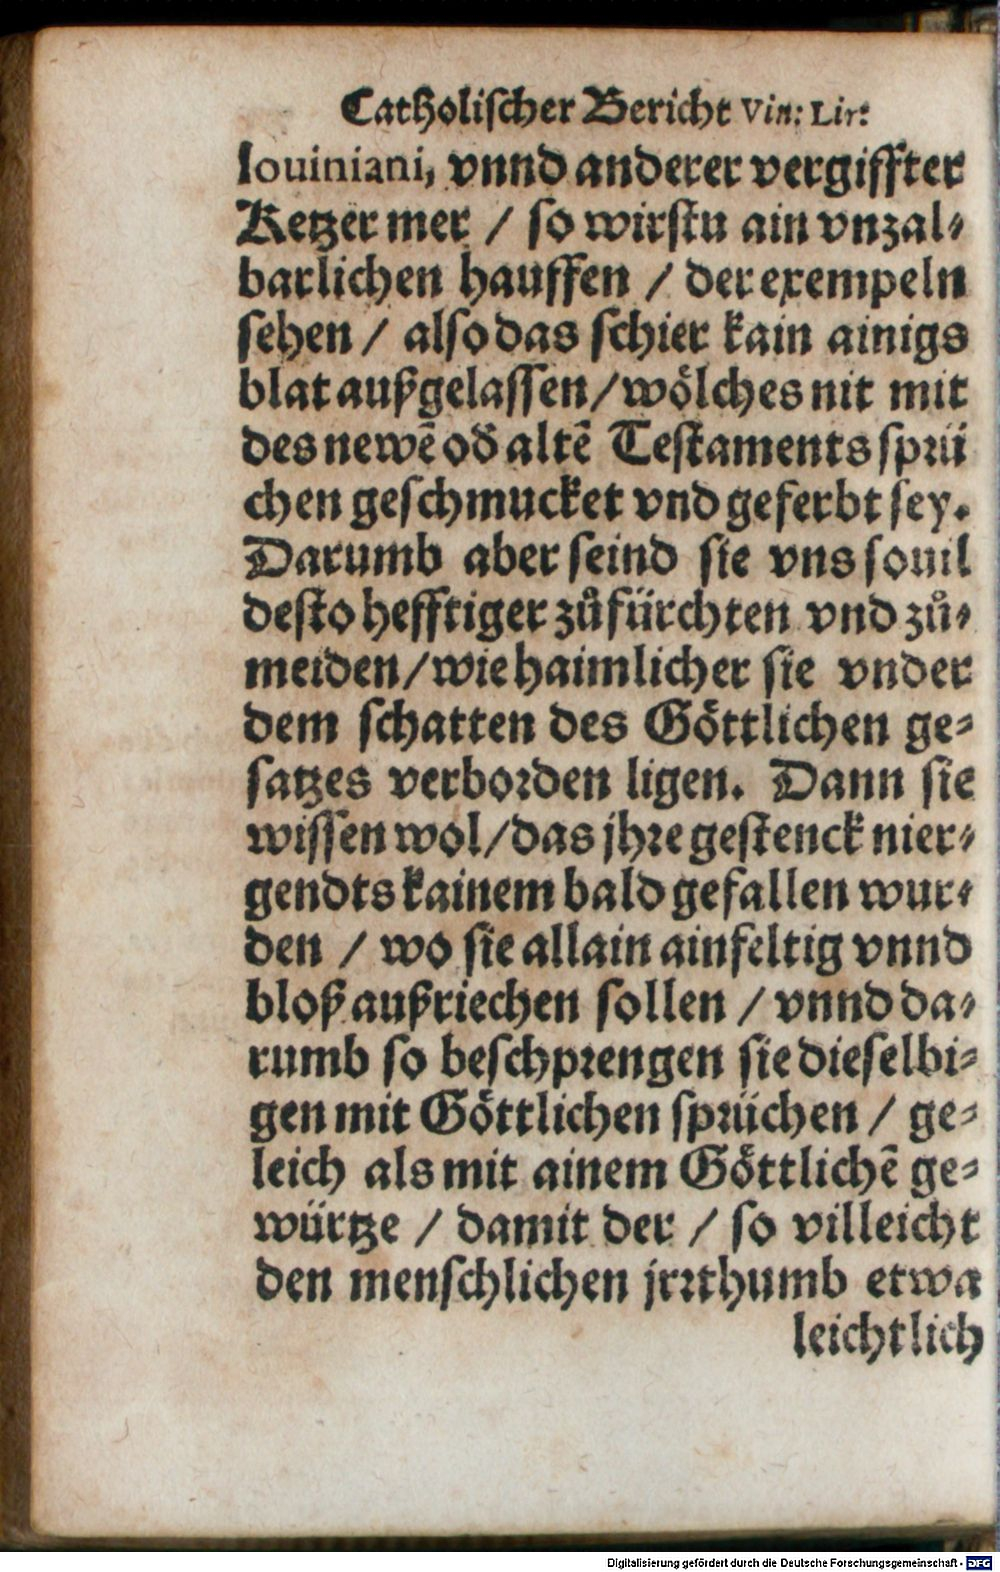 Catholischer Bericht Vin: Lir:
Iouiniani, vnnd anderer vergiffter
Ketzer mer / so wirstu ain vnzal-
barlichen hauffen / der exempeln
sehen / also das schier kain ainigs
blat außgelassen / wölches nit mit
des newẽ oď altẽ Testaments sprü
chen geschmucket vnd geferbt sey.
Darumb aber seind sie vns souil
desto hefftiger zůfürchten vnd zů-
meiden / wie haimlicher sie vnder
dem schatten des Göttlichen ge-
satzes verborden ligen. Dann sie
wissen wol / das jhre gestenck nier-
gendts kainem bald gefallen wur-
den / wo sie allain ainfeltig vnnd
bloß außriechen sollen / vnnd da-
rumb so beschprengen sie dieselbi-
gen mit Göttlichen sprüchen / ge-
leich als mit ainem Göttlichẽ ge-
würtze / damit der / so villeicht
den menschlichen jrrthumb etwa
leichtlich
Digitalisierung gefördert durch die Deutsche Forschungsgemeinschaft - DFG